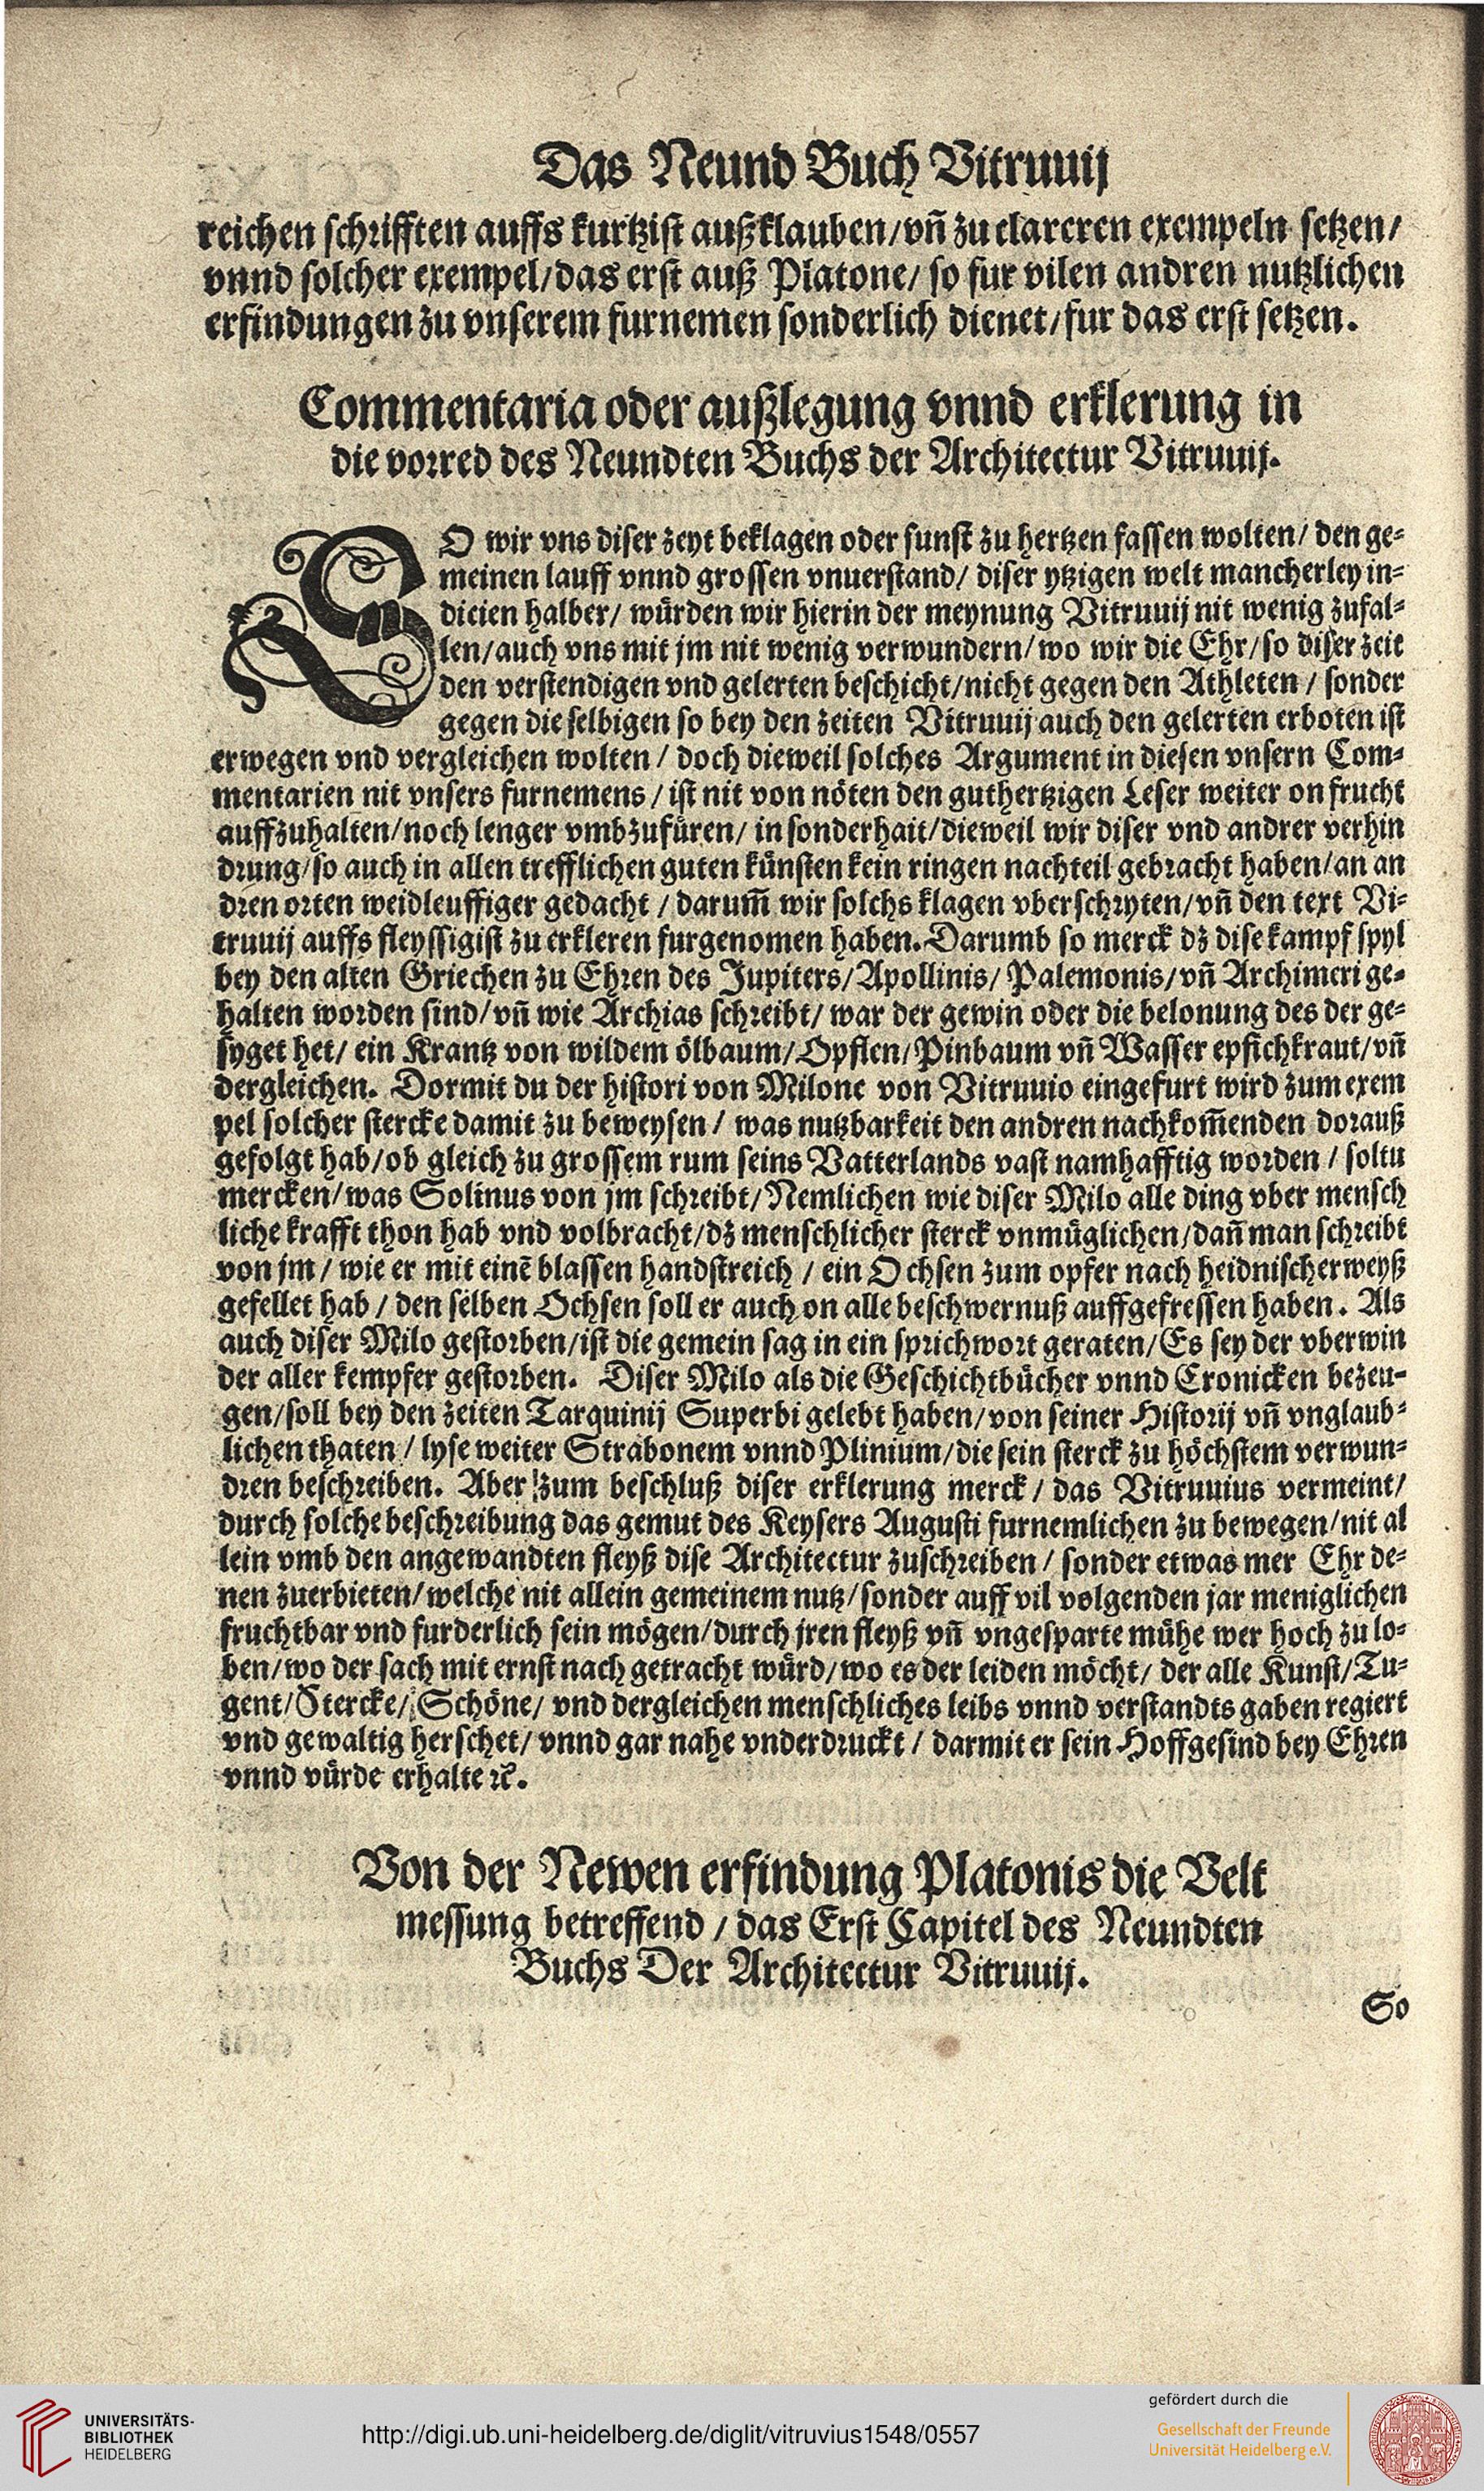 Das Neund Buch Vitruuij
reichen schrifften auffs kurtzist außklauben/vñ zu clareren exempeln setzen/
vnnd solcher exempel/das erst auß Platone/ so fur vilen andren nutzlichen
erfindungen zu vnserem furnemen sonderlich dienet/fur das erst setzen.
Commentaria oder außlegung vnnd erklerung in
die vorred des Neundten Buchs der Architectur Vitruuij.
SO wir vns diser zeyt beklagen oder sunst zu hertzen fassen wolten/ den ge-
meinen lauff vnnd grossen vnuerstand/ diser ytzigen welt mancherley in-
dicien halber/ würden wir hierin der meynung Vitruuij nit wenig zufal-
len/auch vns mit jm nit wenig verwundern/wo wir die Ehr/so diser zeit
den verstendigen vnd gelerten beschicht/nicht gegen den Athleten / sonder
gegen die selbigen so bey den zeiten Vitruuij auch den gelerten erboten ist
erwegen vnd vergleichen wolten / doch dieweil solches Argument in diesen vnsern Com-
mentarien nit vnsers furnemens / ist nit von nöten den guthertzigen Leser weiter on frucht
auffzuhalten/noch lenger vmbzufüren/ in sonderhait/dieweil wir diser vnd andrer verhin
drung/so auch in allen trefflichen guten künsten kein ringen nachteil gebracht haben/an an
dren orten weidleuffiger gedacht / darum̃ wir solchs klagen vberschryten/vñ den text Vi-
truuij auffs fleyssigist zu erkleren furgenomen haben. Darumb so merck dz dise kampf spyl
bey den alten Griechen zu Ehren des Jupiters/Apollinis/ Palemonis/vñ Archimeri ge-
halten worden sind/vñ wie Archias schreibt/ war der gewin oder die belonung des der ge-
syget het/ ein Krantz von wildem ölbaum/Opflen/Pinbaum vñ Wasser epfichkraut/vñ
dergleichen. Dormit du der histori von Milone von Vitruuio eingefurt wird zum exem
pel solcher stercke damit zu beweysen / was nutzbarkeit den andren nachkom̃enden dorauß
gefolgt hab/ob gleich zu grossem rum seins Vatterlands vast namhafftig worden / soltu
mercken/was Solinus von jm schreibt/Nemlichen wie diser Milo alle ding vber mensch
liche krafft thon hab vnd volbracht/dz menschlicher sterck vnmüglichen/dañ man schreibt
von jm / wie er mit einẽ blassen handstreich / ein Ochsen zum opfer nach heidnischer weyß
gefellet hab / den selben Ochsen soll er auch on alle beschwernuß auffgefressen haben. Als
auch diser Milo gestorben/ist die gemein sag in ein sprichwort geraten/Es sey der vberwin
der aller kempfer gestorben. Diser Milo als die Geschichtbücher vnnd Cronicken bezeu-
gen/soll bey den zeiten Tarquinij Superbi gelebt haben/von seiner Historij vñ vnglaub-
lichen thaten / lyse weiter Strabonem vnnd Plinium/die sein sterck zu höchstem verwun-
dren beschreiben. Aber zum beschluß diser erklerung merck / das Vitruuius vermeint/
durch solche beschreibung das gemut des Keysers Augusti furnemlichen zu bewegen/nit al
lein vmb den angewandten fleyß dise Architectur zuschreiben / sonder etwas mer Ehr de-
nen zuerbieten/welche nit allein gemeinem nutz/sonder auff vil volgenden jar meniglichen
fruchtbar vnd furderlich sein mögen/durch jren fleyß vñ vngesparte mühe wer hoch zu lo-
ben/wo der sach mit ernst nach getracht würd/wo es der leiden möcht/ der alle Kunst/Tu-
gent/Stercke/Schöne/ vnd dergleichen menschliches leibs vnnd verstandts gaben regiert
vnd gewaltig herschet/ vnnd gar nahe vnderdruckt / darmit er sein Hoffgesind bey Ehren
vnnd vürde erhalte ꝛc̃.
Von der Newen erfindung Platonis die Velt
messung betreffend / das Erst Capitel des Neundten
Buchs Der Architectur Vitruuij.
So
UNIVERSITÄTS-
BIBLIOTHEK
HEIDELBERG
http://digi.ub.uni-heidelberg.de/diglit/vitruvius1548/0557
gefördert durch die
Gesellschaft der Freunde
Universität Heidelberg e.V.